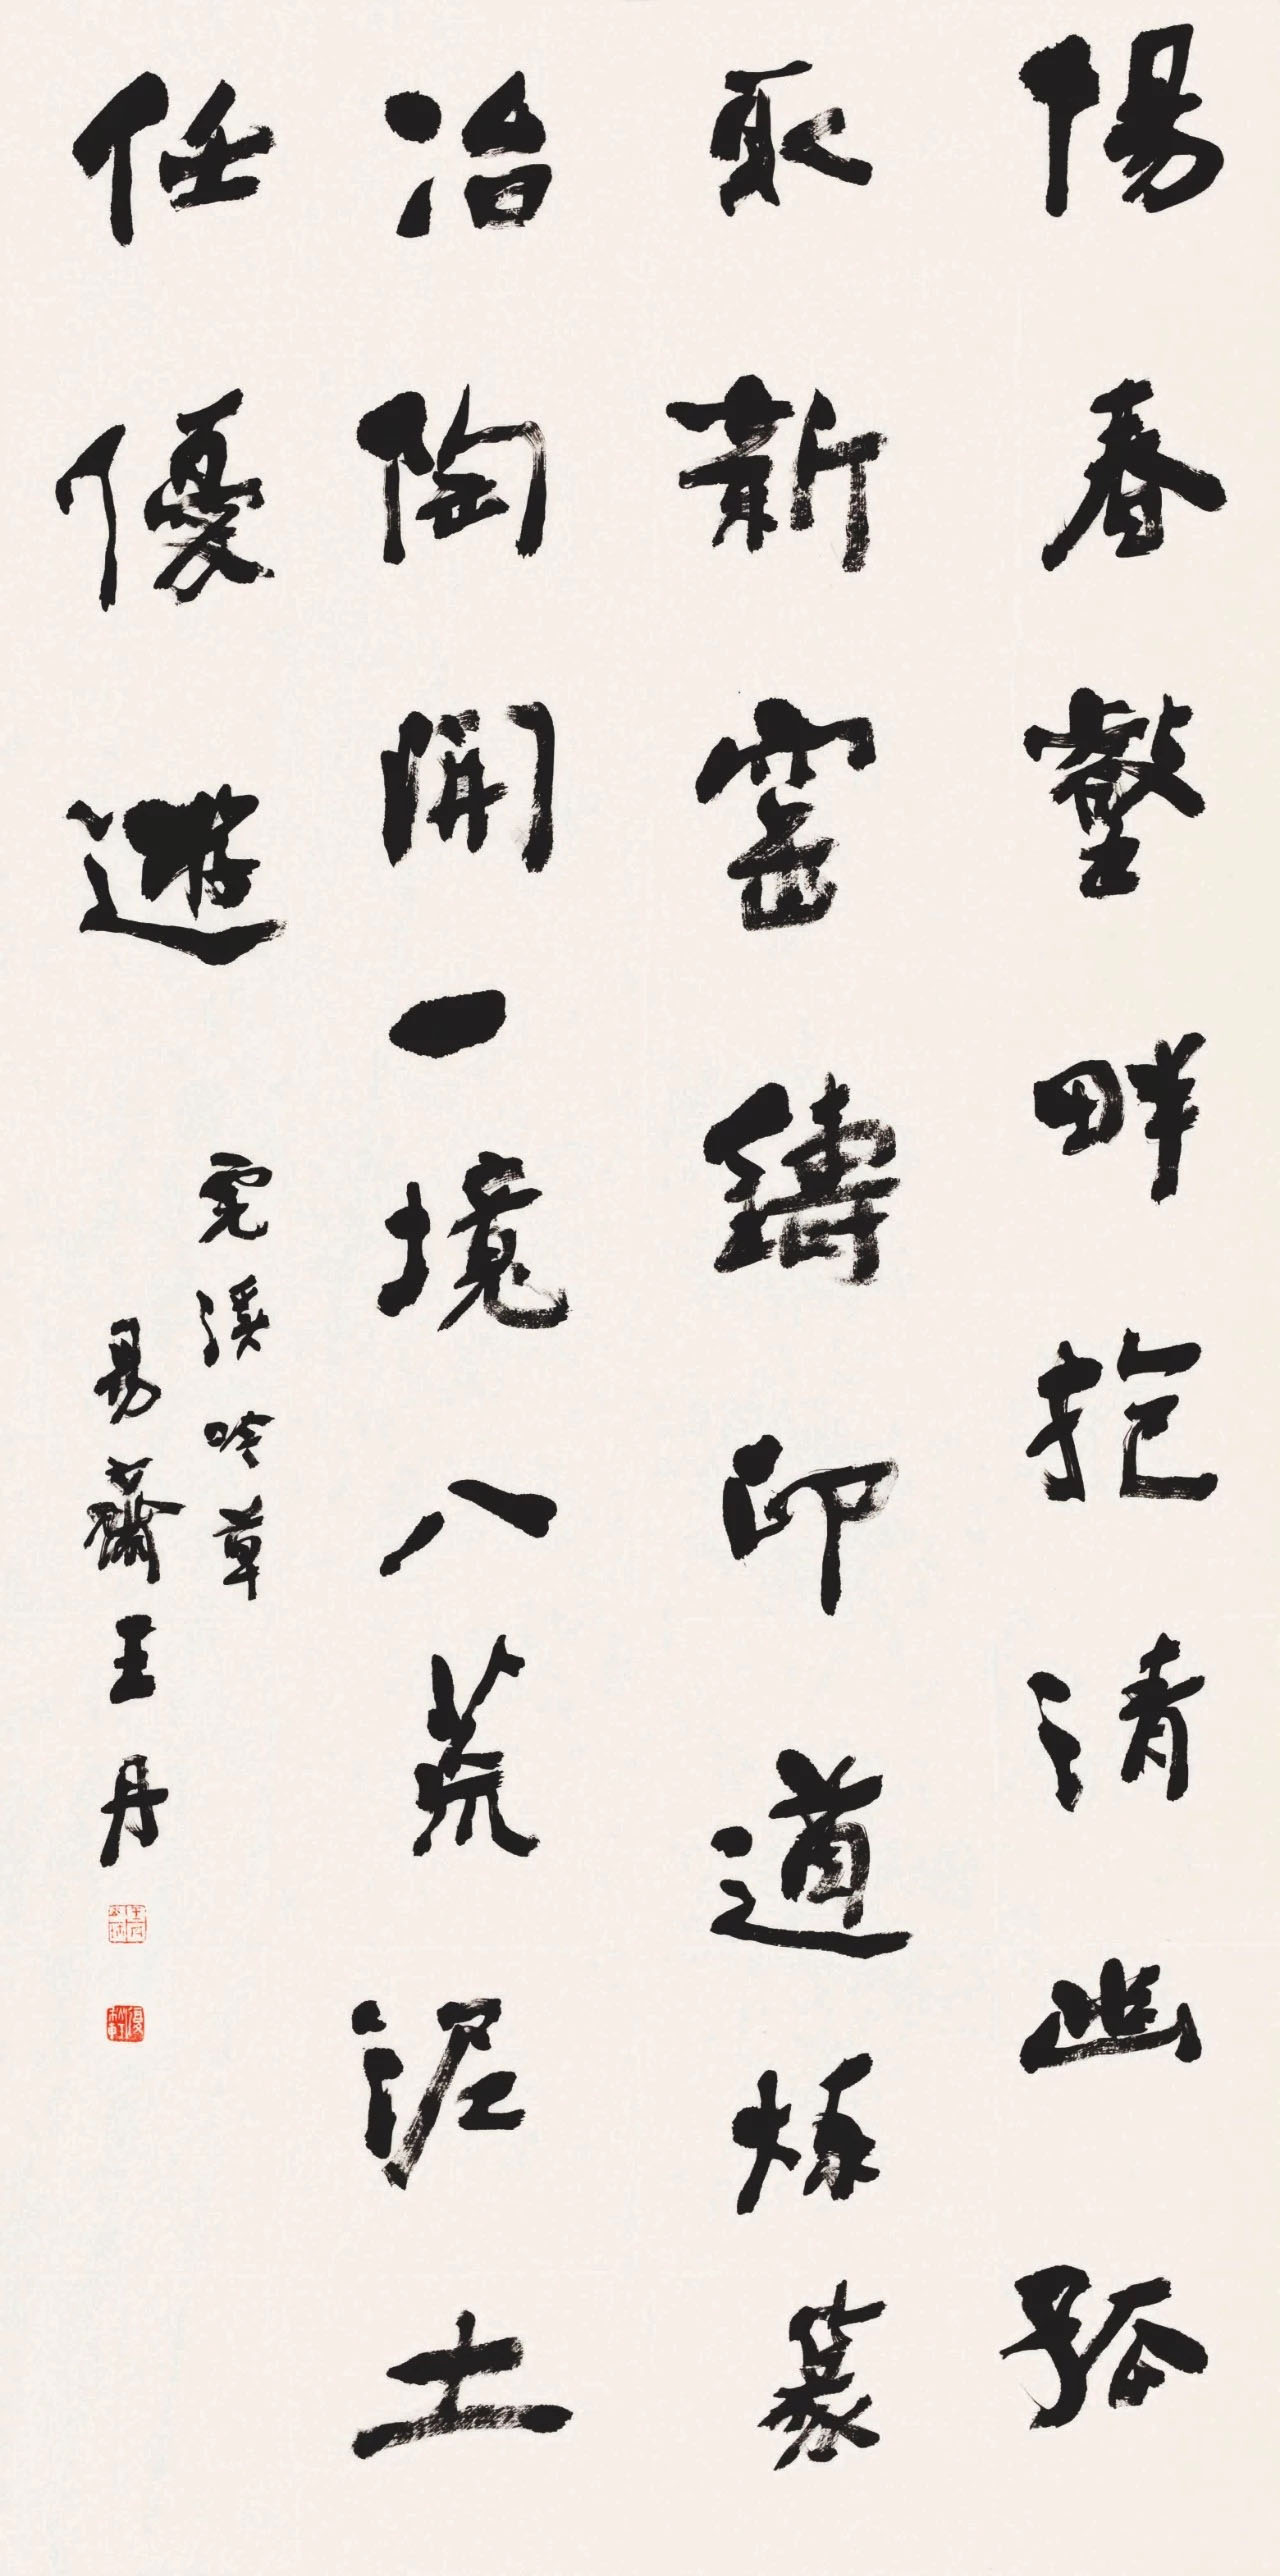 陽春壑畔抱清幽孤
取新窯鑄印遒煉篆
冶陶開一境八荒泥土
任優遊
霓溪吟草
易齋王丹